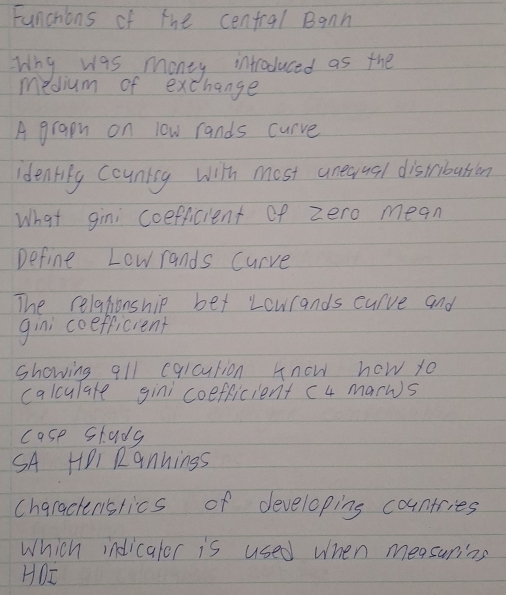 Functions of the central Bank
Why was Money introduced as the
Medium of exchange
A graph on low rands curve
identify Country with most unequal distribution
What gini coefficient of zero mean
Define Low rands Curve
The relationship bet Lowrands curve and
gini coefficient
showing all calcution know how to
calculate gini coefficient (4 marks
case study
SA HDI Rankings
Characteristics of developing countries
Which indicator is used when measuring
HDI